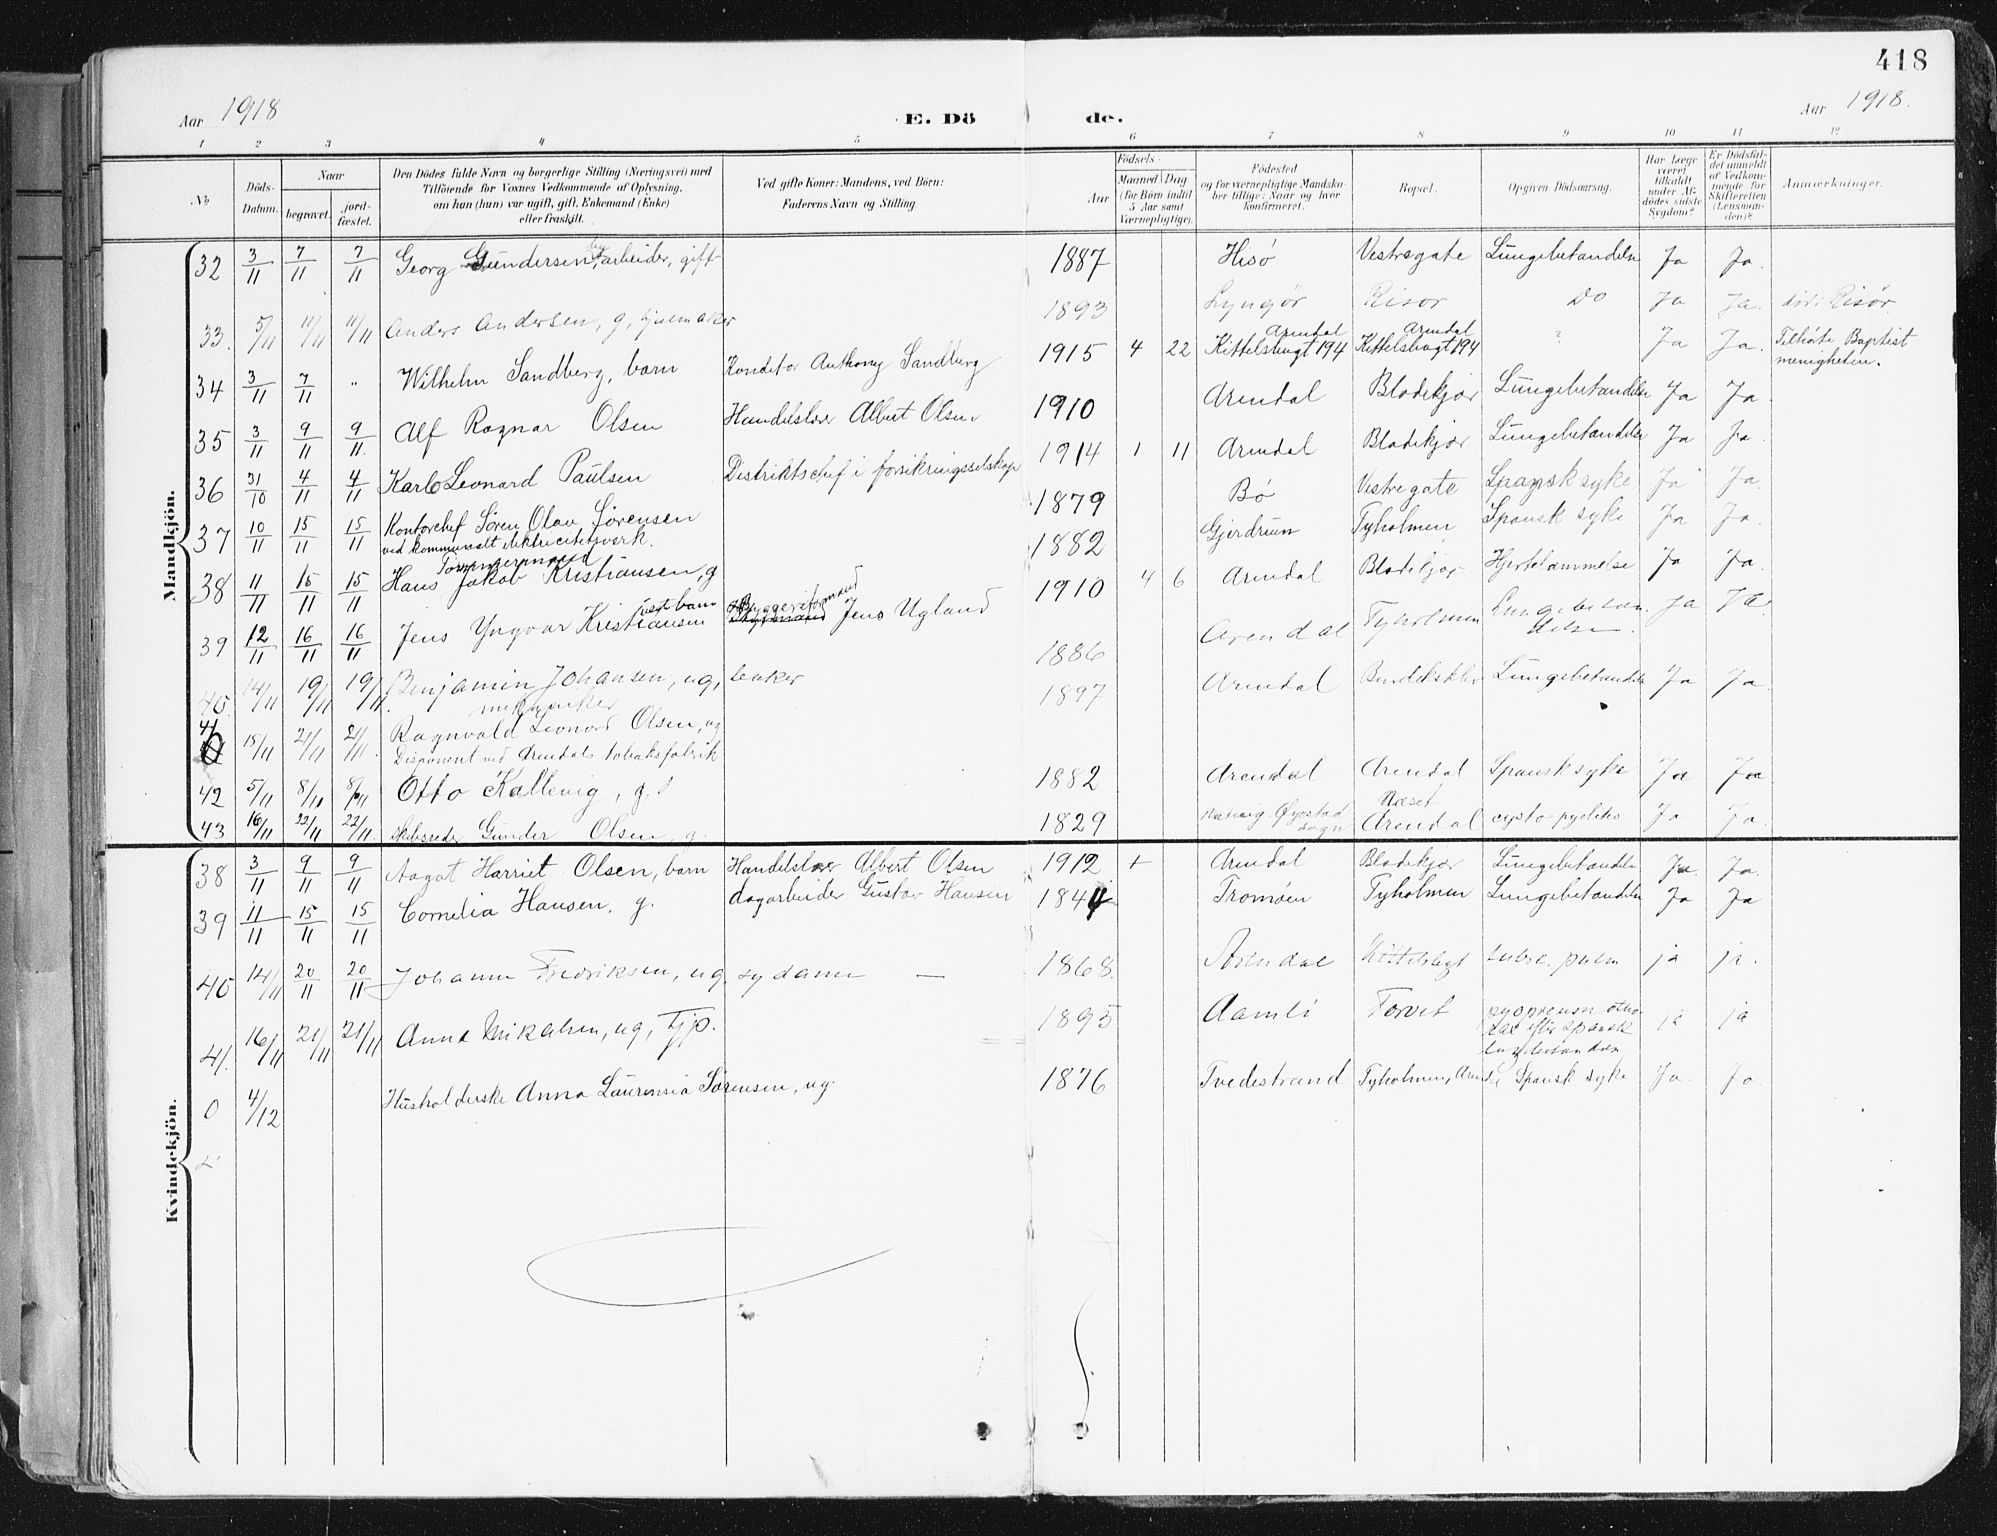 418
Aar 1918
E. Dö de.
Aar 1918.
1 2 3 4 5 6 7 8 9 10 11 12
No
Döds-Datum.
Naar
begravet.
jord-fæstet.
Den Dödes fulde Navn og borgerlige Stilling (Næringsvei) med
Tilföiende for Voxnes Vedkommende af Oplysning,
om han (hun) var ugift, gift, Enkemand (Enke)
eller fraskilt.
Ved gifte Koner: Mandens, ved Börn:
Faderens Navn og Stilling.
Födsels-
Aar
Maaned Dag
(for Börn indtil
5 Aar samt
Værnepligtige).
Födested
og for værnepligtige Mandska-
ber tillige: Naar og hvor
konfirmeret.
Bopæl.
Opgiven Dödsaarsag.
Har Læge
været
tilkaldt
under Af-
dödes sidste
Sygdom?
Er Dödsfal-
det anmeldt
af Vedkom-
mende for
Skifteretten
(Lensman-
den)?
Anmærkninger.
Mandkjön.
32 3/11 7/11 7/11 Georg Gundersen, arbeider, gift 1887 Hisö Vestregate Lungebetændelse Ja Ja.
33. 5/11 11/11 11/11 Anders Andersen, g, hjulmaker 1893 Lyngör Risör Do Ja Ja. död i Risör.
34 3/11 7/11 " Wilhelm Sandberg, barn Konditor Anthony Sandberg 1915 4 22 Arendal Kittelsbugt 194 Arendal Kittelsbugt 194 ? Ja Ja. Tilhöte Baptist
menigheten.
35 3/11 9/11 9/11 Alf Ragnar Olsen Handelslærer Albert Olsen 1910 Arendal Blødekjær Lungebetændelse Ja Ja.
36 31/10 4/11 4/11 Karl Leonard Paulsen Distriktschef i forsikringsselskap 1914 1 11 Arendal Blødekjær Lungebetændelse Ja Ja.
37 10/11 15/11 15/11 Kontorchef Sören Olav Sörensen
ved kommunalt elektricitetsverk. 1879 Bö Vestregate Spansk syke Ja Ja.
38 11/11 15/11 15/11 Hans Jakob Kristiansen, g 1882 Gjerdrum Tyholmen Spansk syke Ja Ja.
39 12/11 16/11 16/11 Jens Yngvar Kristiansen barn Bryggeriformand Jens Ugland 1910 4 6 Arendal Blødekjær Hjertelammelse Ja Ja.
40. 14/11 19/11 19/11 Benjamin Johansen, ug, 1886 Arendal Tyholmen Lungebetændelse. Ja Ja.
41 15/11 21/11 21/11 Ragnvald Leonard Olsen, ug
Disponent ved Arendals tobaksfabrik 1897 Arendal Lungebetændelse Ja Ja.
42 5/11 8/11 8/11 Otto Kallevig, g. 1882 Arendal Arendal Spansk syke Ja Ja
43 16/11 22/11 22/11. Skibsreder Gunder Olsen, g. 1829 Öyestad sogn Næset Arendal cysto pyelitis Ja Ja.
Kvindekjön.
38 3/11 9/11 9/11 Aagot Harriet Olsen, barn Handelslærer Albert Olsen 1912 + Arendal Blødekjær Lungebetændelse Ja. Ja.
39 11/11 15/11 15/11 Cornelia Hansen, g. dagarbeider Gustav Hansen 1844 Tromöen Tyholmen Lungebetændelse Ja Ja
40 14/11 20/11 20/11 Johanne Fredriksen, ug, sydame — 1868. Arendal Kittelsbugt tuberc. pulm ja ja.
41. 16/11 21/11 21/11 Anna Mikalsen, ug, Tjp. 1895 Aamli Torvet ja ja
0 4/12 Husholderske Anna Laurensia Sörensen, ug. 1876 Tvedestrand Tyholmen, Arendal Spansk syke Ja. Ja.